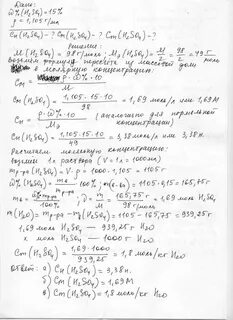 Дано:
W%(H2SO4) = 15%
ρ = 1,105 г/мл
Cн(H2SO4) - ? Cm(H2SO4) - ? Cm(H2SO4) - ?
Решение:
M(H2SO4) = 98 г/моль; Mэ(H2SO4) = M/2 = 98/2 = 49 г/моль
возьмем формулу пересчета из массовой доли
в молярную концентрацию:
Cм = ρ·W%·10 / M
Cм(H2SO4) = 1,105·15·10 / 98 = 1,69 моль/л или 1,69М
Cн = ρ·W%·10 / Mэ (аналогично для нормальной
концентрации)
Cн(H2SO4) = 1,105·15·10 / 49 = 3,38 моль/л или 3,38н.
Рассчитаем моляльную концентрацию:
Возьмем 1л раствора (V = 1л = 1000мл)
mр-ра(H2SO4) = V·ρ = 1000·1,105 = 1105г
W% = mв / mр-ра · 100%; m(в-ва) = 1105·0,15 = 165,75г
mв = W%·mр-ра / 100%; ν = m/M = 165,75г / 98г/моль = 1,69 моль H2SO4
m(H2O) = mр-ра - m(H2SO4) = 1105 - 165,75 = 939,25г
1,69 моль H2SO4 — 939,25г H2O
x моль H2SO4 — 1000г H2O
Cm(H2SO4) = 1,69·1000 / 939,25 = 1,8 моль/кг H2O
Ответ: а) Cн(H2SO4) = 3,38н.
б) Cм(H2SO4) = 1,69М
в) Cm(H2SO4) = 1,8 моль/кг H2O